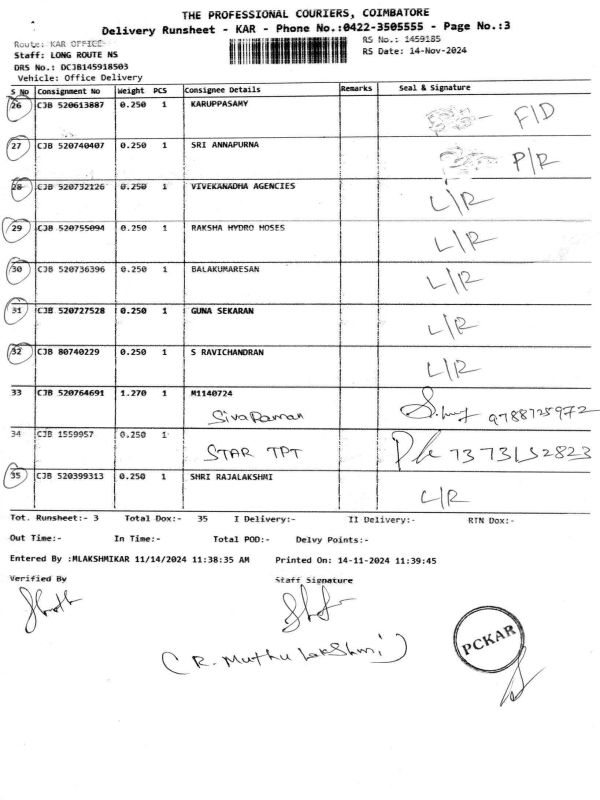 THE PROFESSIONAL COURIERS, COIMBATORE
Delivery Runsheet - KAR - Phone No.:0422-3505555 - Page No.:3
Route: KAR OFFICE
RS No.: 1459185
Staff: LONG ROUTE NS
RS Date: 14-Nov-2024
DRS No.: DCJB145918503
Vehicle: Office Delivery
S No Consignment No Weight PCS Consignee Details Remarks Seal & Signature
26 CJB 520613887 0.250 1 KARUPPASAMY F/D
27 CJB 520740407 0.250 1 SRI ANNAPURNA P/R
28 CJB 520732126 0.250 1 VIVEKANADHA AGENCIES L/R
29 CJB 520755094 0.250 1 RAKSHA HYDRO HOSES L/R
30 CJB 520736396 0.250 1 BALAKUMARESAN L/R
31 CJB 520727528 0.250 1 GUNA SEKARAN L/R
32 CJB 80740229 0.250 1 S RAVICHANDRAN L/R
33 CJB 520764691 1.270 1 M1140724
SivaRaman 9788725972
34 CJB 1559957 0.250 1
STAR TPT 7373152823
35 CJB 520399313 0.250 1 SHRI RAJALAKSHMI L/R
Tot. Runsheet:- 3 Total Dox:- 35 I Delivery:- II Delivery:- RTN Dox:-
Out Time:- In Time:- Total POD:- Delvy Points:-
Entered By :MLAKSHMIKAR 11/14/2024 11:38:35 AM Printed On: 14-11-2024 11:39:45
Verified By Staff Signature
(R. Muthu lakshmi)
PCKAR